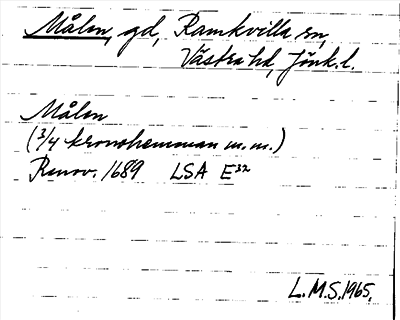 Målen, gd, Ramkvilla sn,
Västra hd, Jönk.l.
Målen
(3/4 kronohemman m.m.)
Renov. 1689 LSA E32
L.M.S. 1965.